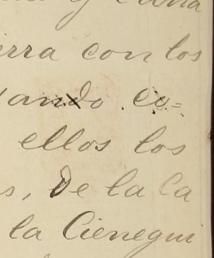 y
rra con los
tando co=
ellos los
s, De la Ca
la Cienegui